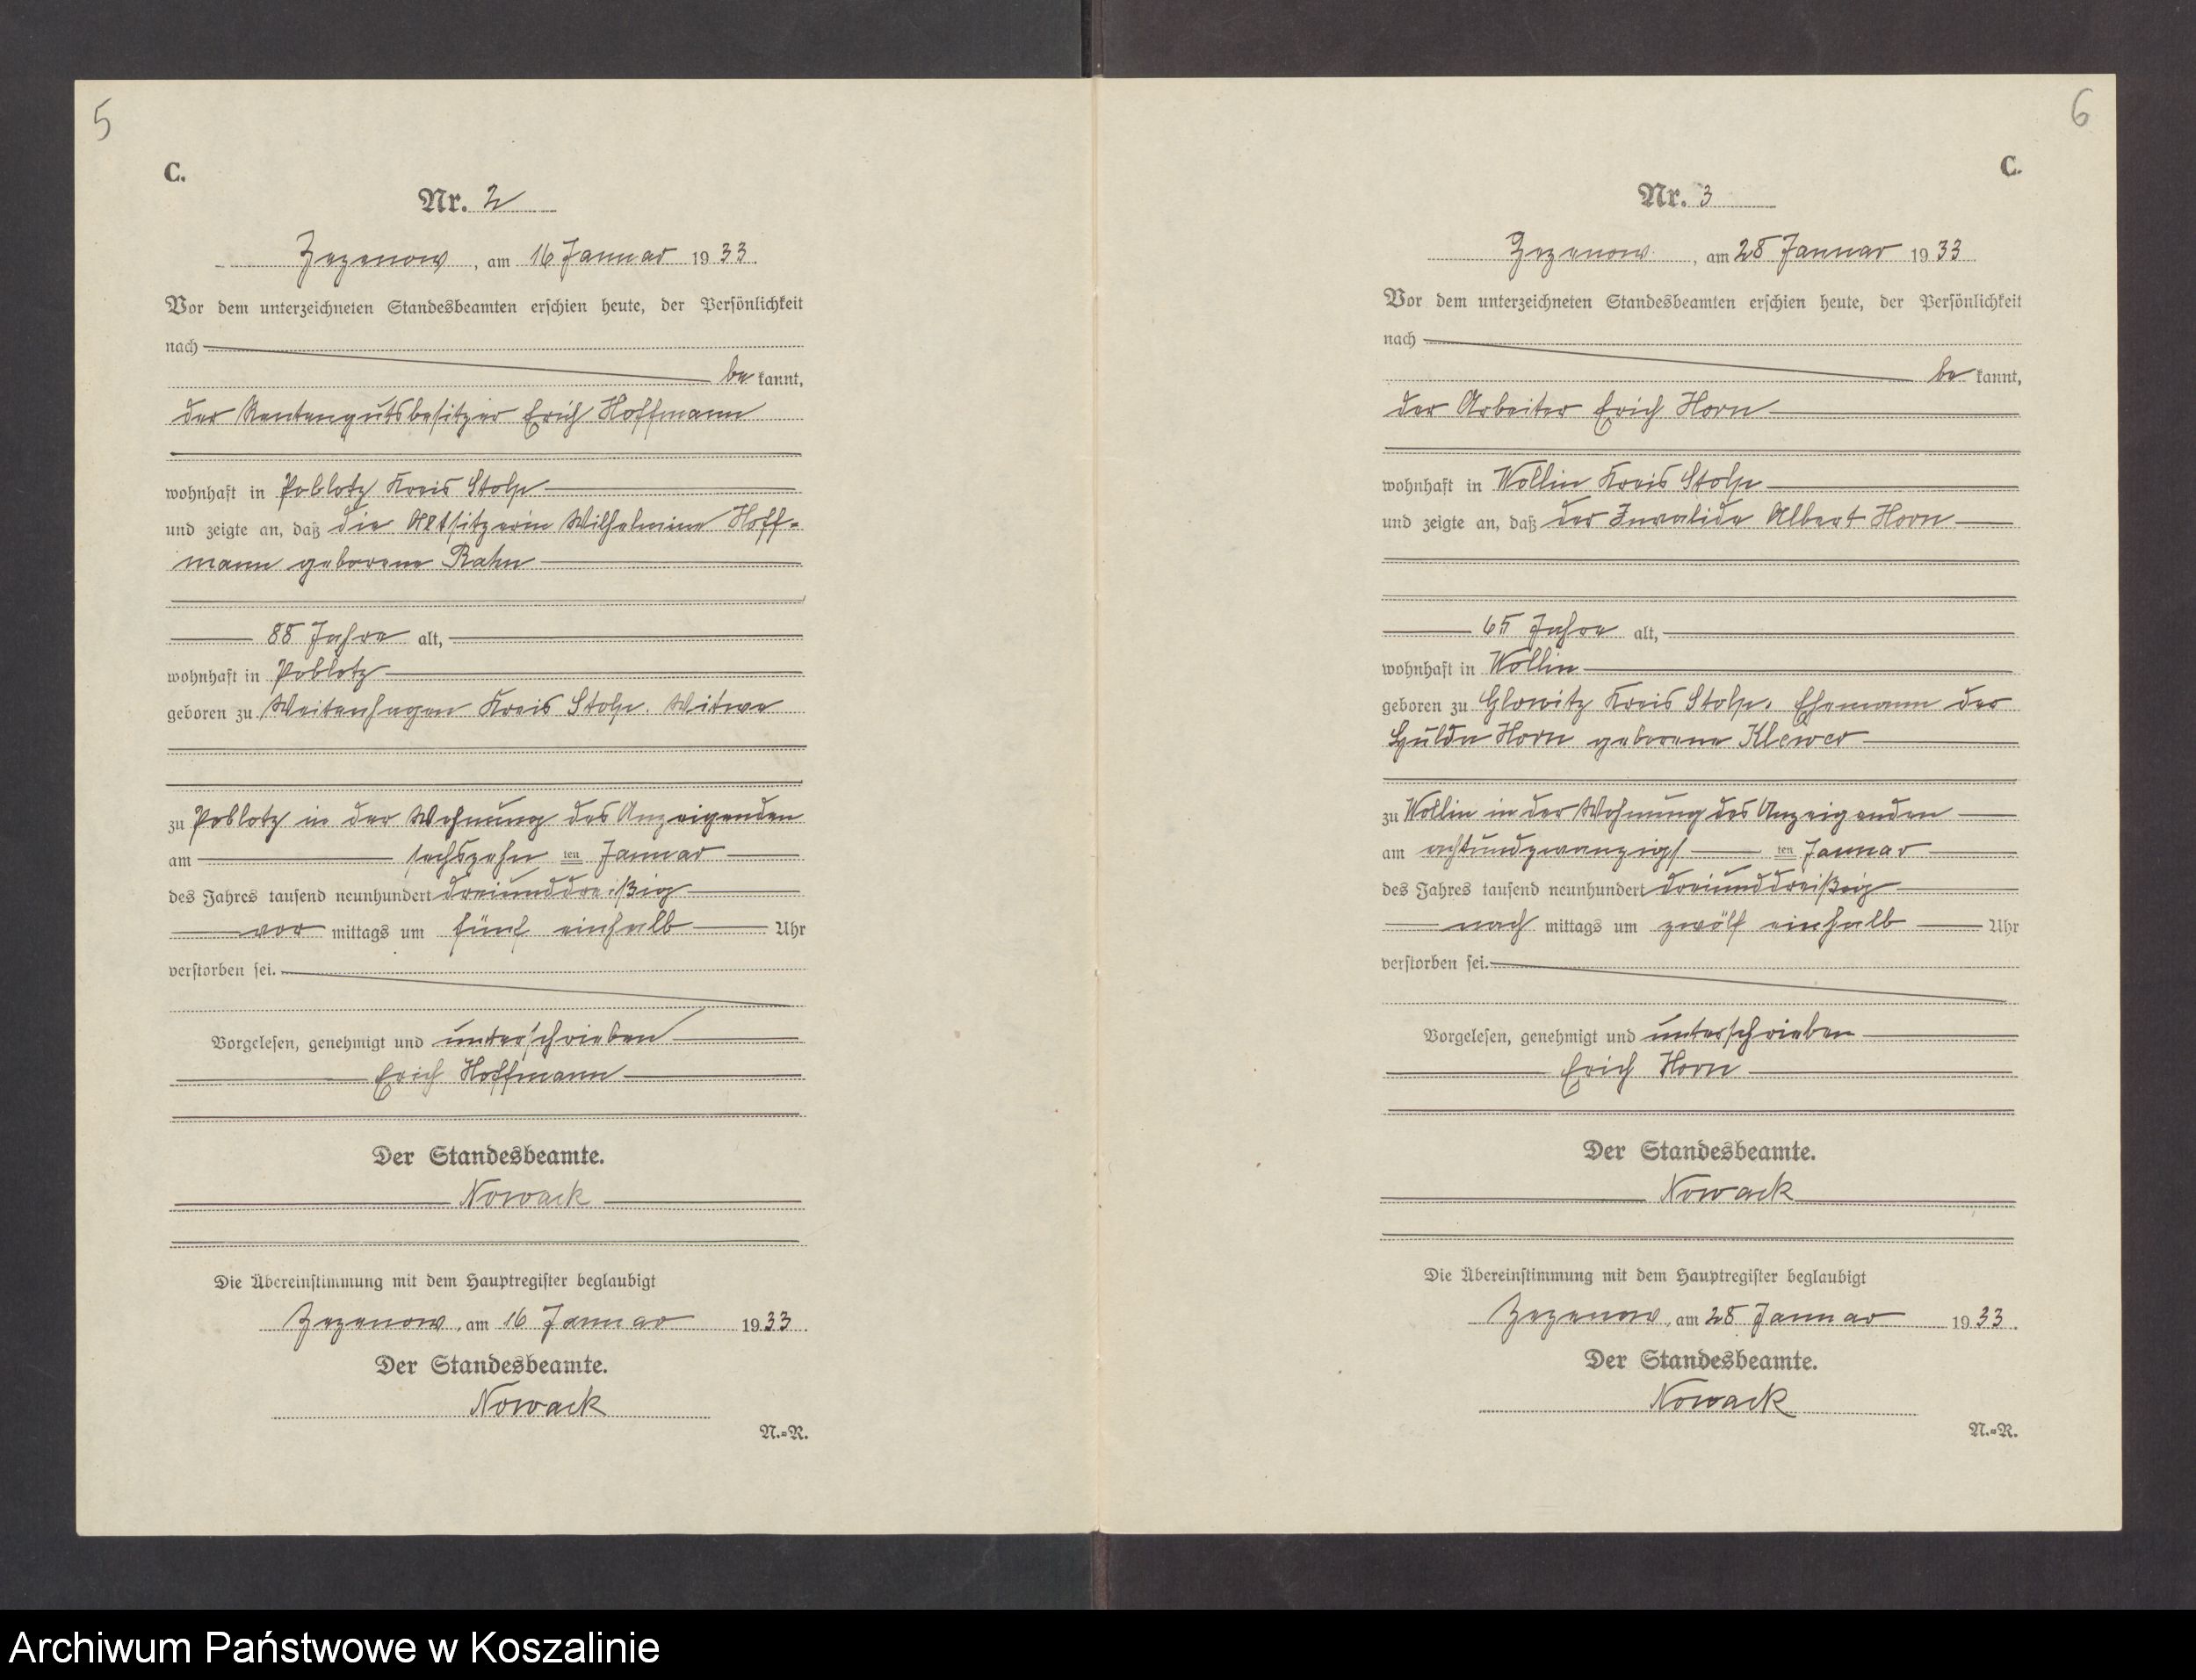 5
C.
Nr. 2
Zezenow, am 16 Januar 1933.
Vor dem unterzeichneten Standesbeamten erschien heute, der Persönlichkeit
nach
be kannt,
der Rentengutsbesitzer Erich Hoffmann
wohnhaft in Poblotz Kreis Stolp
und zeigte an, daß die Altsitzerin Wilhelmine Hoff-
mann geborene Rahn
88 Jahre alt,
wohnhaft in Poblotz
geboren zu Weitenhagen Kreis Stolp. Witwe
zu Poblotz in der Wohnung des Anzeigenden
am sechszehn ten Januar
des Jahres tausend neunhundert dreiunddreißig
vor mittags um fünf einhalb Uhr
verstorben sei.
Vorgelesen, genehmigt und unterschrieben
Erich Hoffmann
Der Standesbeamte.
Nowack
Die Übereinstimmung mit dem Hauptregister beglaubigt
Zezenow, am 16 Januar 1933.
Der Standesbeamte.
Nowack
N.-R.
6
C.
Nr. 3
Zezenow, am 28 Januar 1933
Vor dem unterzeichneten Standesbeamten erschien heute, der Persönlichkeit
nach
be kannt,
der Arbeiter Erich Horn
wohnhaft in Wollin Kreis Stolp
und zeigte an, daß der Invalide Albert Horn
65 Jahre alt,
wohnhaft in Wollin
geboren zu Glowitz Kreis Stolp. Ehemann der
Horn geborene Klewer
zu Wollin in der Wohnung des Anzeigenden
am achtundzwanzigs ten Januar
des Jahres tausend neunhundert dreiunddreißig
nach mittags um zwölf einhalb Uhr
verstorben sei.
Vorgelesen, genehmigt und unterschrieben
Erich Horn
Der Standesbeamte.
Nowack
Die Übereinstimmung mit dem Hauptregister beglaubigt
Zezenow, am 28 Januar 1933.
Der Standesbeamte.
Nowack
N.-R.
Archiwum Państwowe w Koszalinie